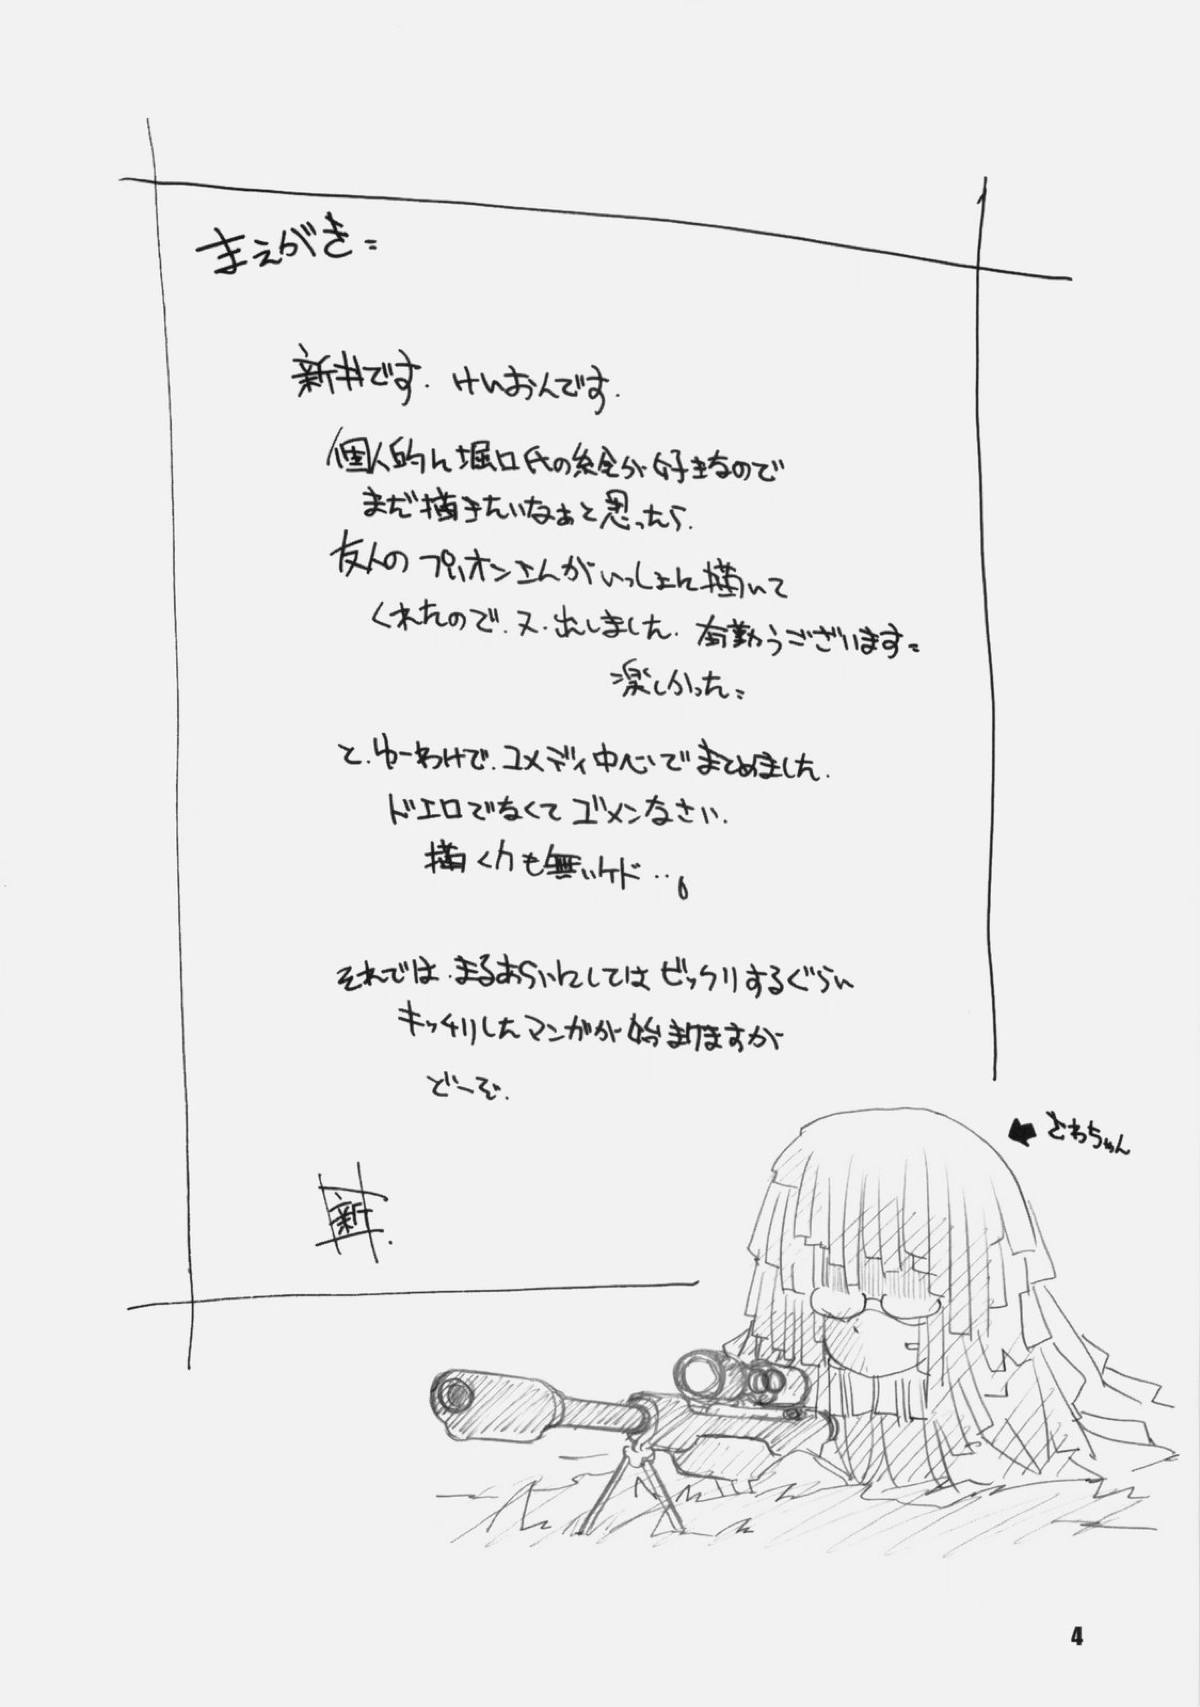 まえがき=
新井です. けいおんです.
個人的に堀口氏の絵が好きなので
まだ描きたいなぁと思ったら.
友人のプリオンさんがいっしょに描いて
くれたので.又.出しました. 有難うございます=
楽しかった=
と.ゆーわけで.コメディ中心でまとめました.
ドエロでなくてゴメンなさい.
描く力も無いケド…。
それでは.まるあらいにしてはビックリするぐらい
キッチリしたマンガが始まりますが
どーぞ.
新井.
さわちゃん
4